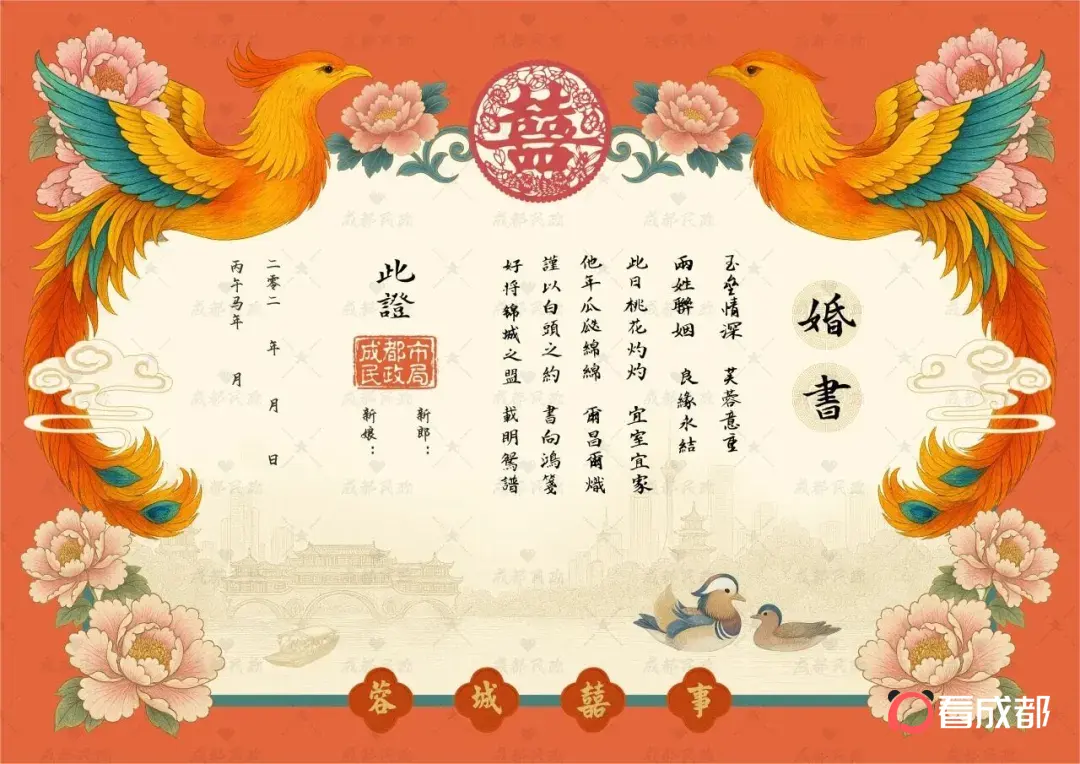 囍
婚書
玉壘情深 芙蓉意重
兩姓聯姻 良緣永結
此日桃花灼灼 宜室宜家
他年瓜瓞綿綿 爾昌爾熾
謹以白頭之約 書向鴻箋
好将錦城之盟 載明鴛譜
此證
成都市民政局
新郎：
新娘：
二零二 年 月 日
丙午马年 月
蓉城囍事
看成都
成都民政